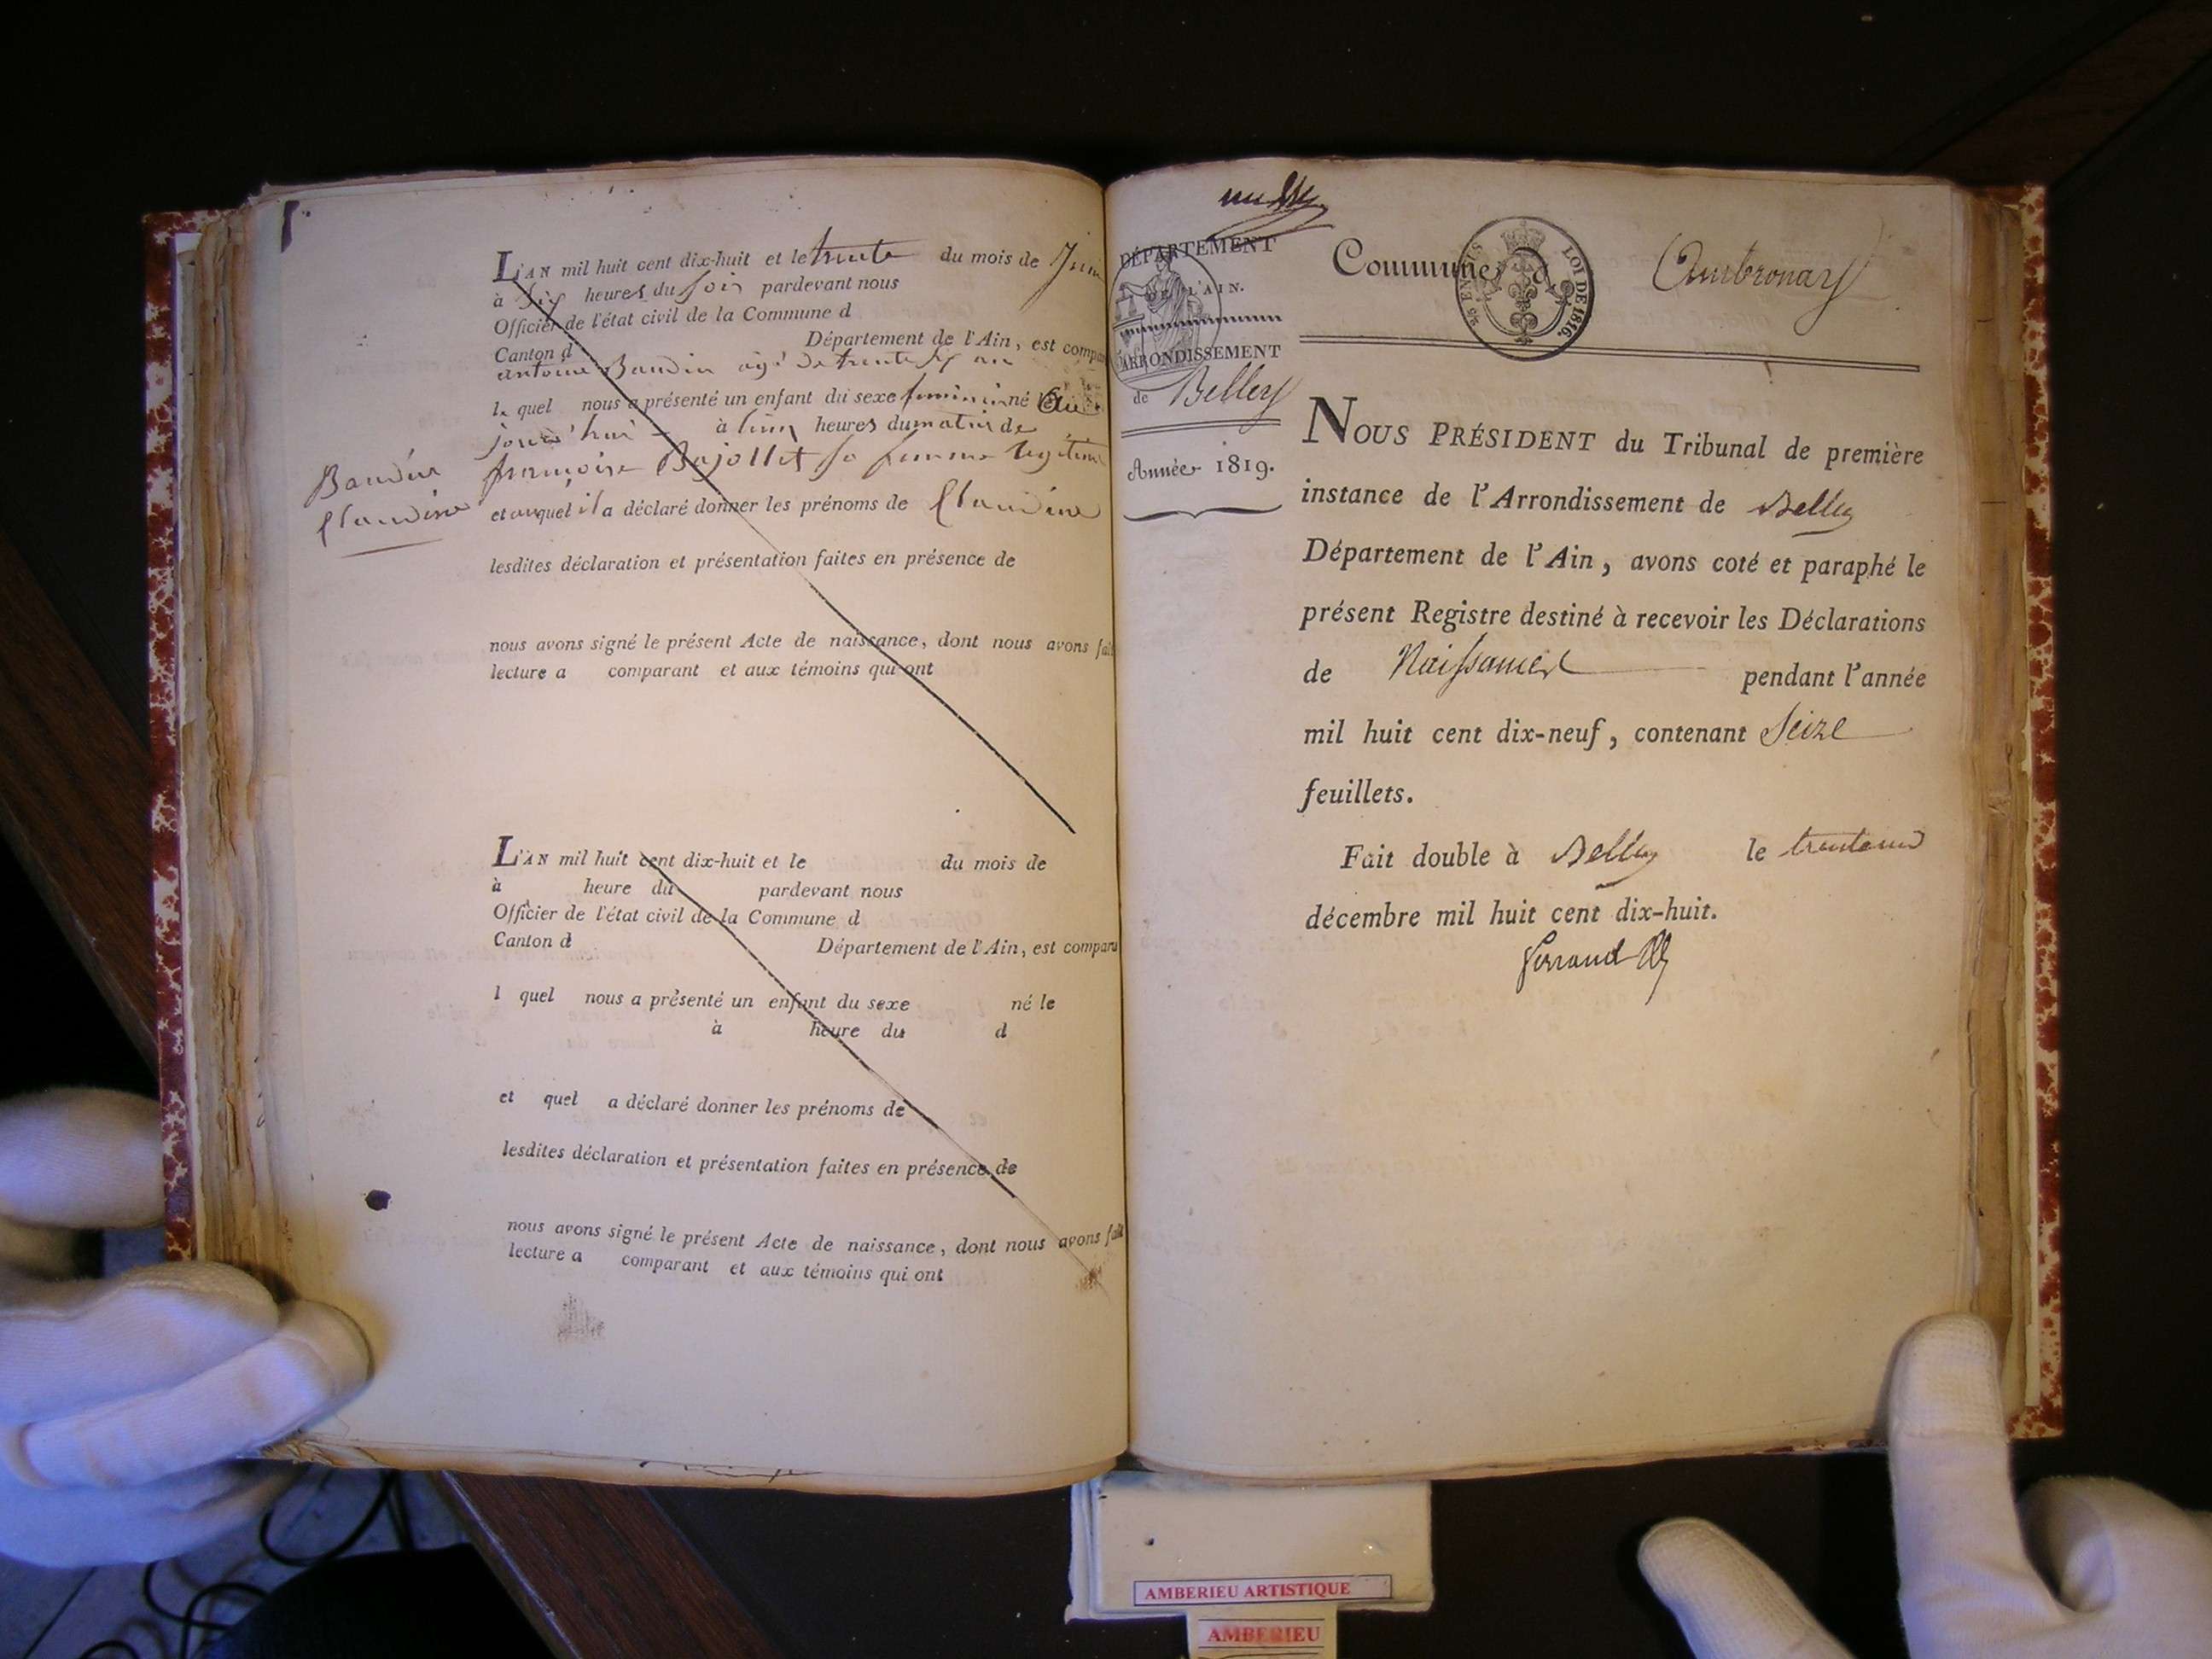 L'AN mil huit cent dix-huit et le trente du mois de Juin
à six heures du soir pardevant nous
Officier de l'état civil de la Commune d
Canton d Département de l'Ain, est compar
antoine Baudin agé de trente six ans
le quel nous a présenté un enfant du sexe feminin né le Au
jourd'hui à cinq heures du matin de
françoise Bajollet sa femme legitime
Baudin
Claudine
et auquel il a déclaré donner les prénoms de Claudine
lesdites déclaration et présentation faites en présence de
nous avons signé le présent Acte de naissance, dont nous avons fait
lecture a comparant et aux témoins qui ont
L'AN mil huit cent dix-huit et le du mois de
à heure du pardevant nous
Officier de l'état civil de la Commune d
Canton d Département de l'Ain, est comparu
l quel nous a présenté un enfant du sexe né le
à heure du d
et quel a déclaré donner les prénoms de
lesdites déclaration et présentation faites en présence de
nous avons signé le présent Acte de naissance, dont nous avons fait
lecture a comparant et aux témoins qui ont
DÉPARTEMENT
DE L'AIN.
ARRONDISSEMENT
de Belley
Année 1819.
Commune d Ambronay
LOI DE 1816.
NOUS PRÉSIDENT du Tribunal de première
instance de l'Arrondissement de Belley
Département de l'Ain, avons coté et paraphé le
présent Registre destiné à recevoir les Déclarations
de Naissances pendant l'année
mil huit cent dix-neuf, contenant Seize
feuillets.
Fait double à Belley le trente un
décembre mil huit cent dix-huit.
AMBERIEU ARTISTIQUE
AMBERIEU